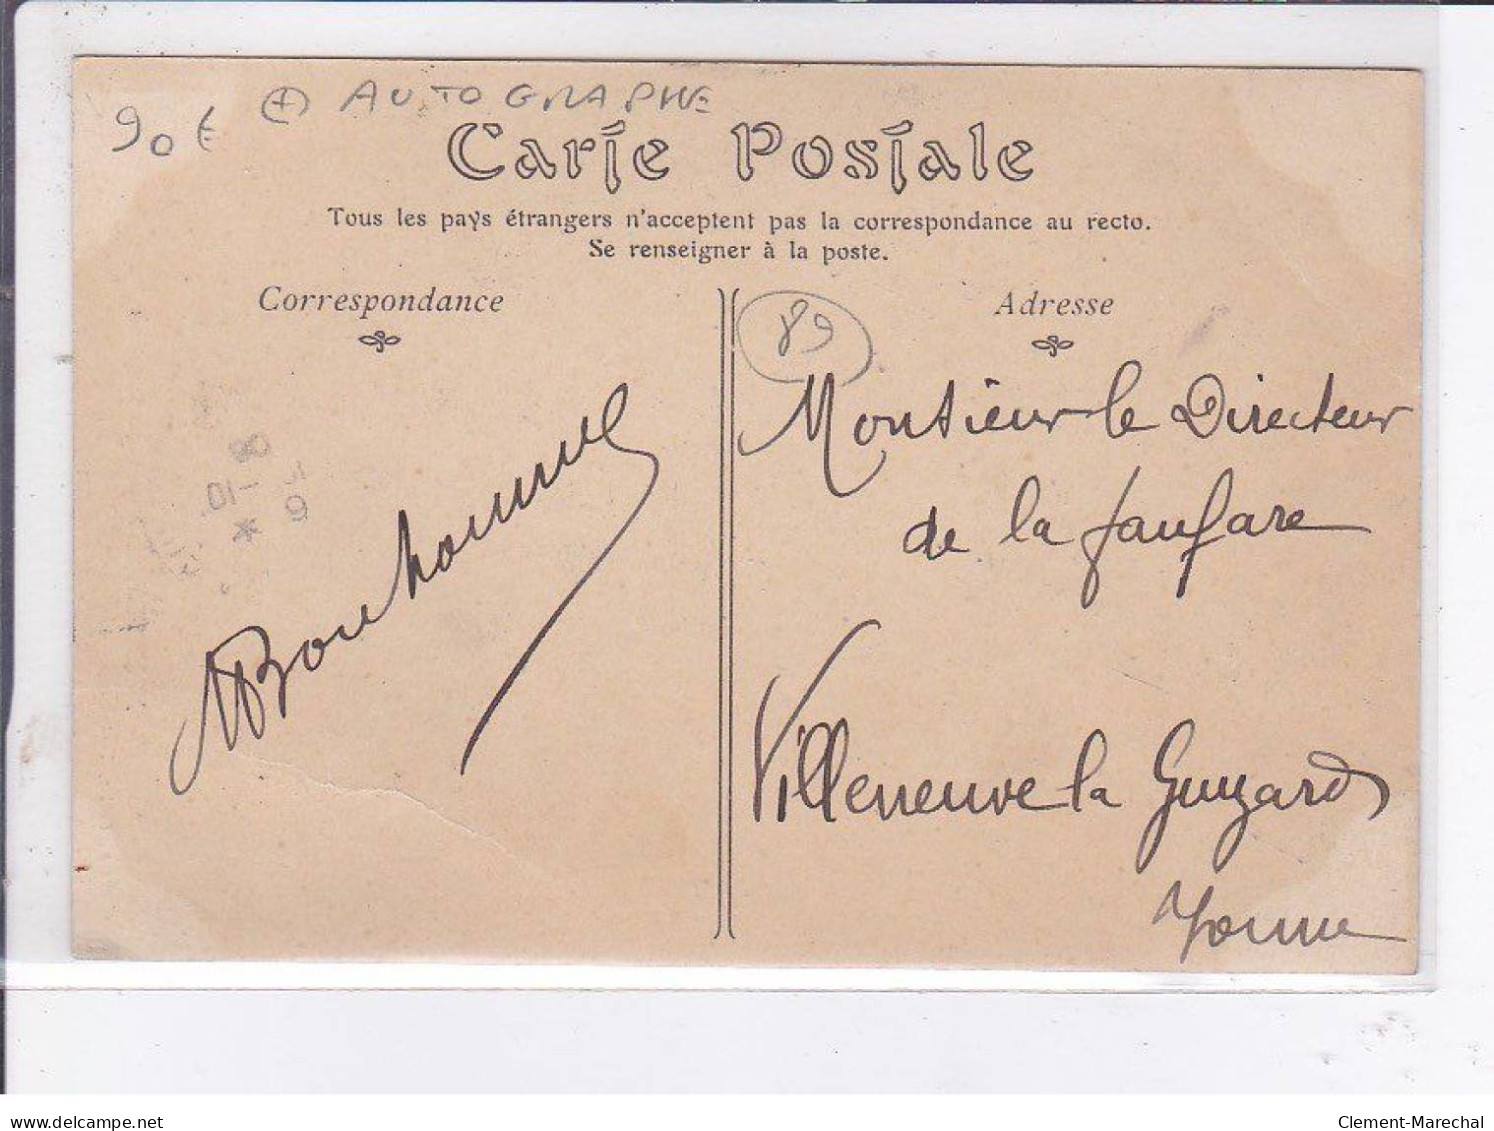 90€ + AUTOGRAPHE
Carte Postale
Tous les pays étrangers n'acceptent pas la correspondance au recto.
Se renseigner à la poste.
Correspondance
Bonhomme
8 -10
6
*
Adresse
89
Monsieur le Directeur
de la fanfare
Villeneuve la Guyard
Yonne
delcampe.net
Clement-Marechal